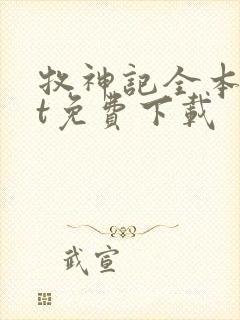 牧神記全本
t免費下載
武宣